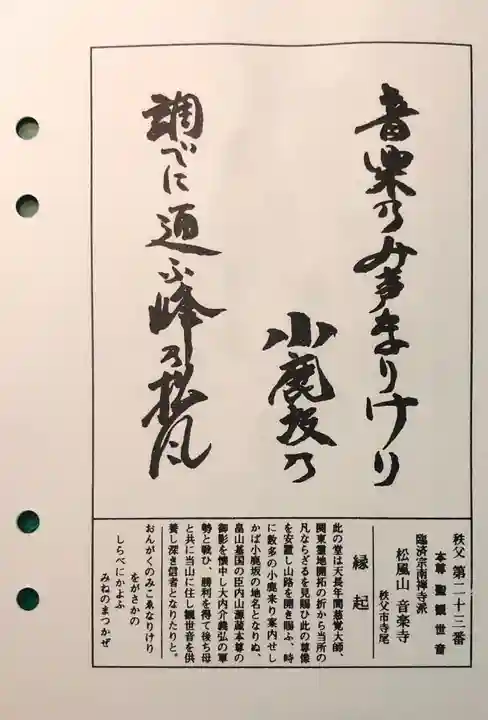 音楽乃み声なりけり
小鹿坂乃
調べに通ふ峰乃松風
秩父 第二十三番
本尊 聖観世音
臨済宗南禅寺派
松風山 音楽寺
秩父市寺尾
縁起
此の堂は天長年間慈覚大師、
関東霊地開拓の折から当所の
凡ならざるを見賜ひ此の尊像
を安置し山路を開き賜ふ、時
に数多の小鹿来り案内せし
かば小鹿坂の地名となりぬ、
畠山基国の臣内山源蔵本尊の
御影を懐中し大内介義弘の軍
勢と戦ひ、勝利を得て後ち母
と共に当山に住し観世音を供
養し深き信者となりたりと。
おんがくのみこゑなりけり
をがさかの
しらべにかよふ
みねのまつかぜ